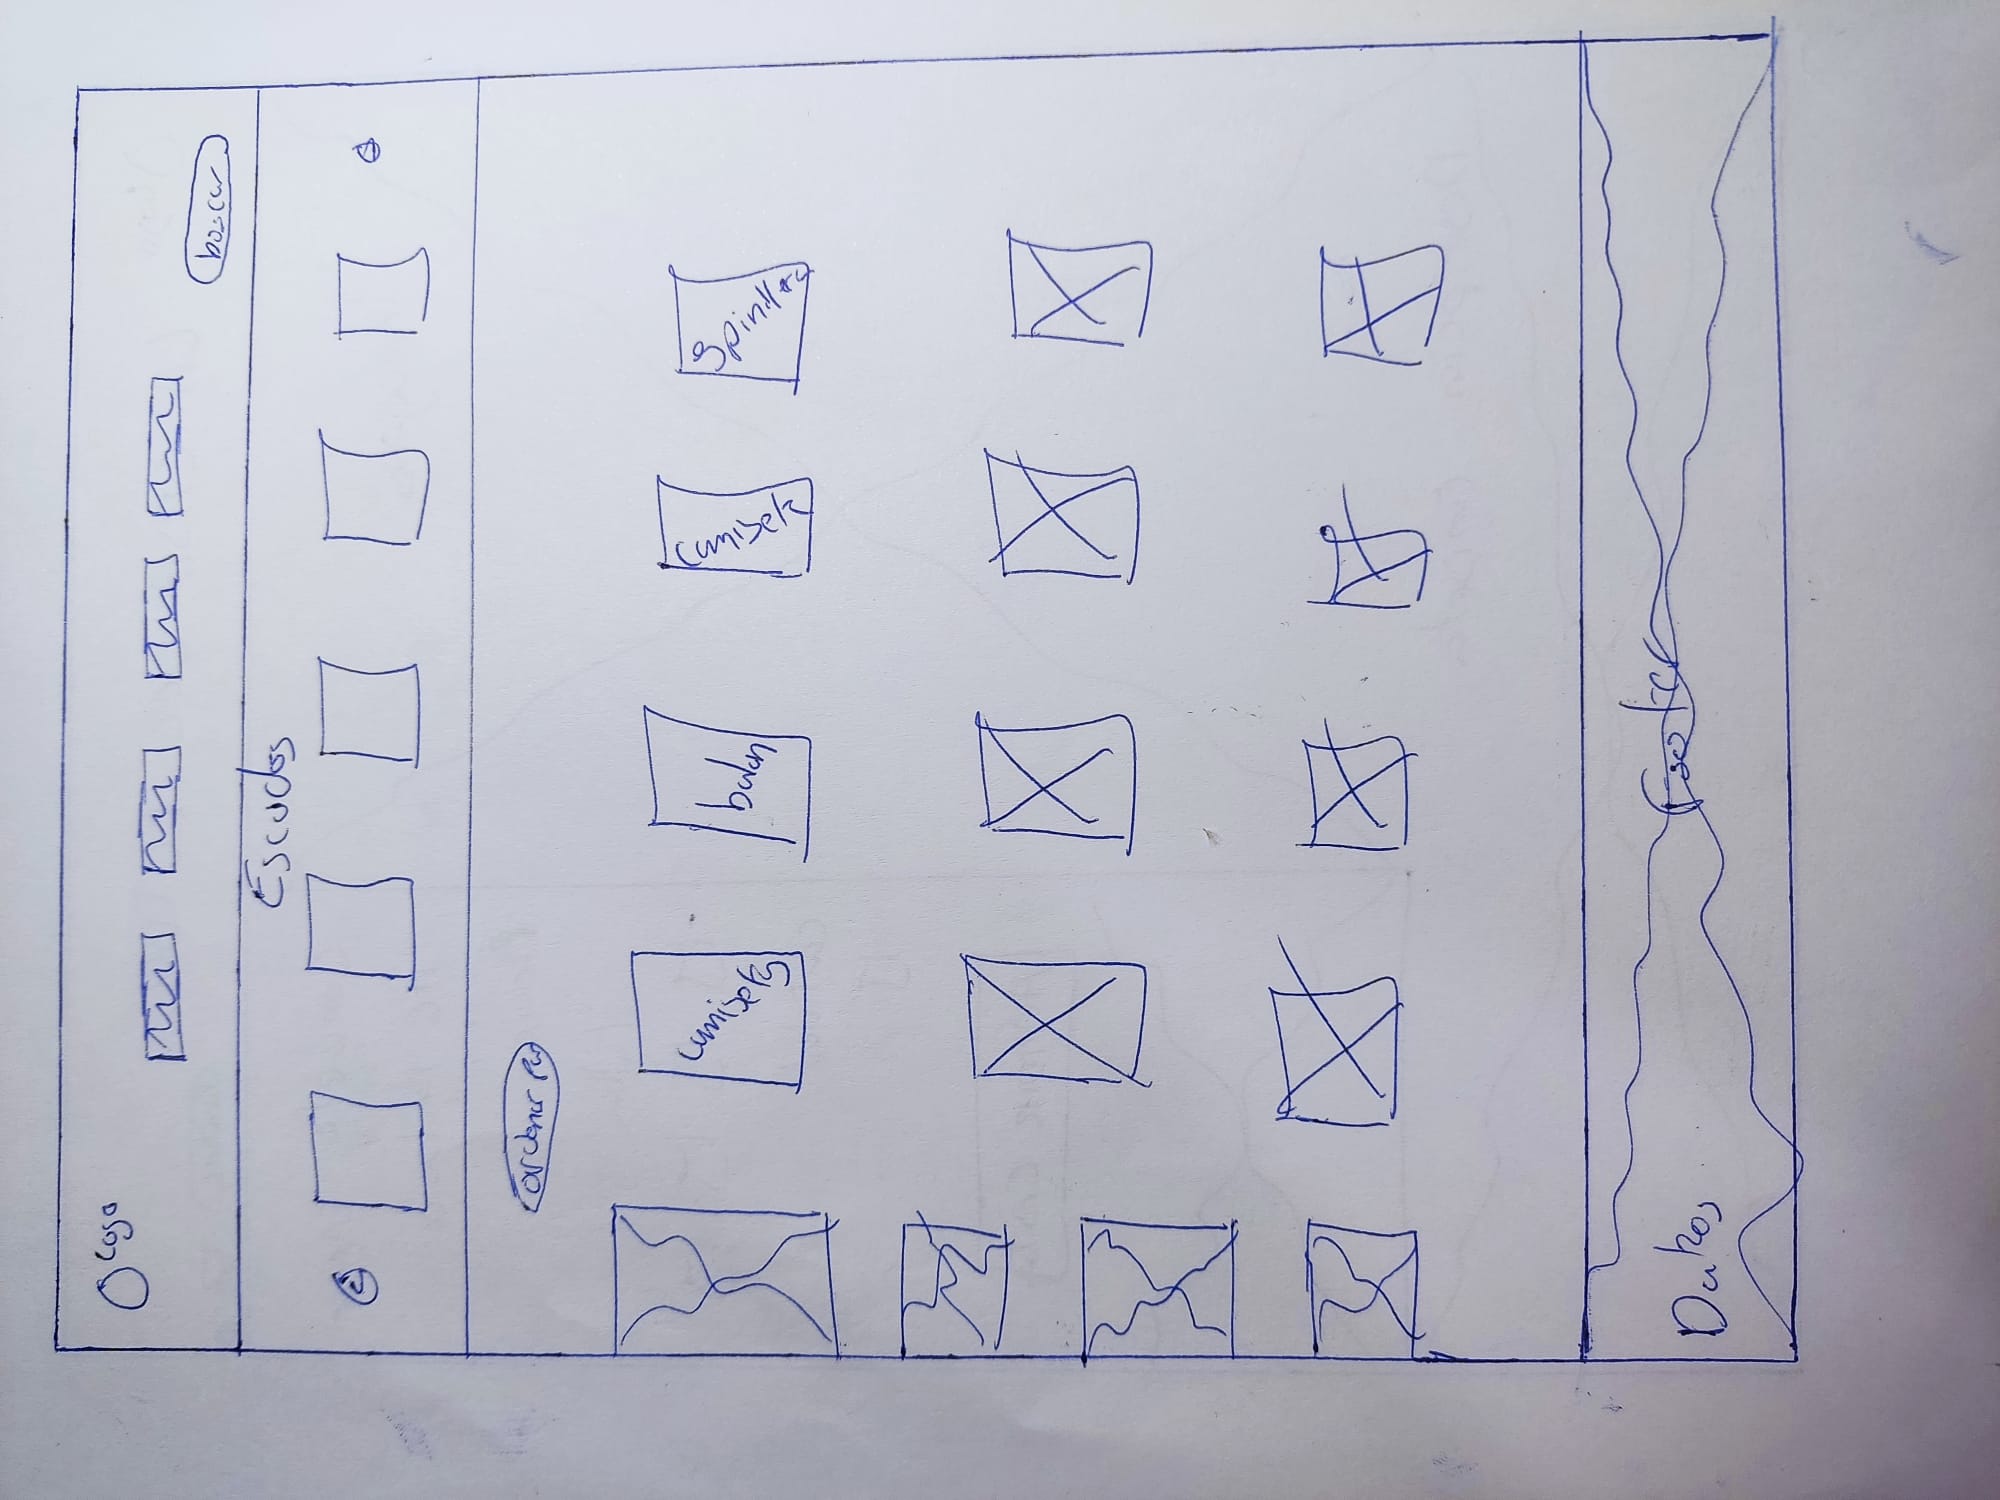 Logo
buscar
Escudos
ordenar por
camiseta
balon
camiseta
Spinilleras
Datos
Footer